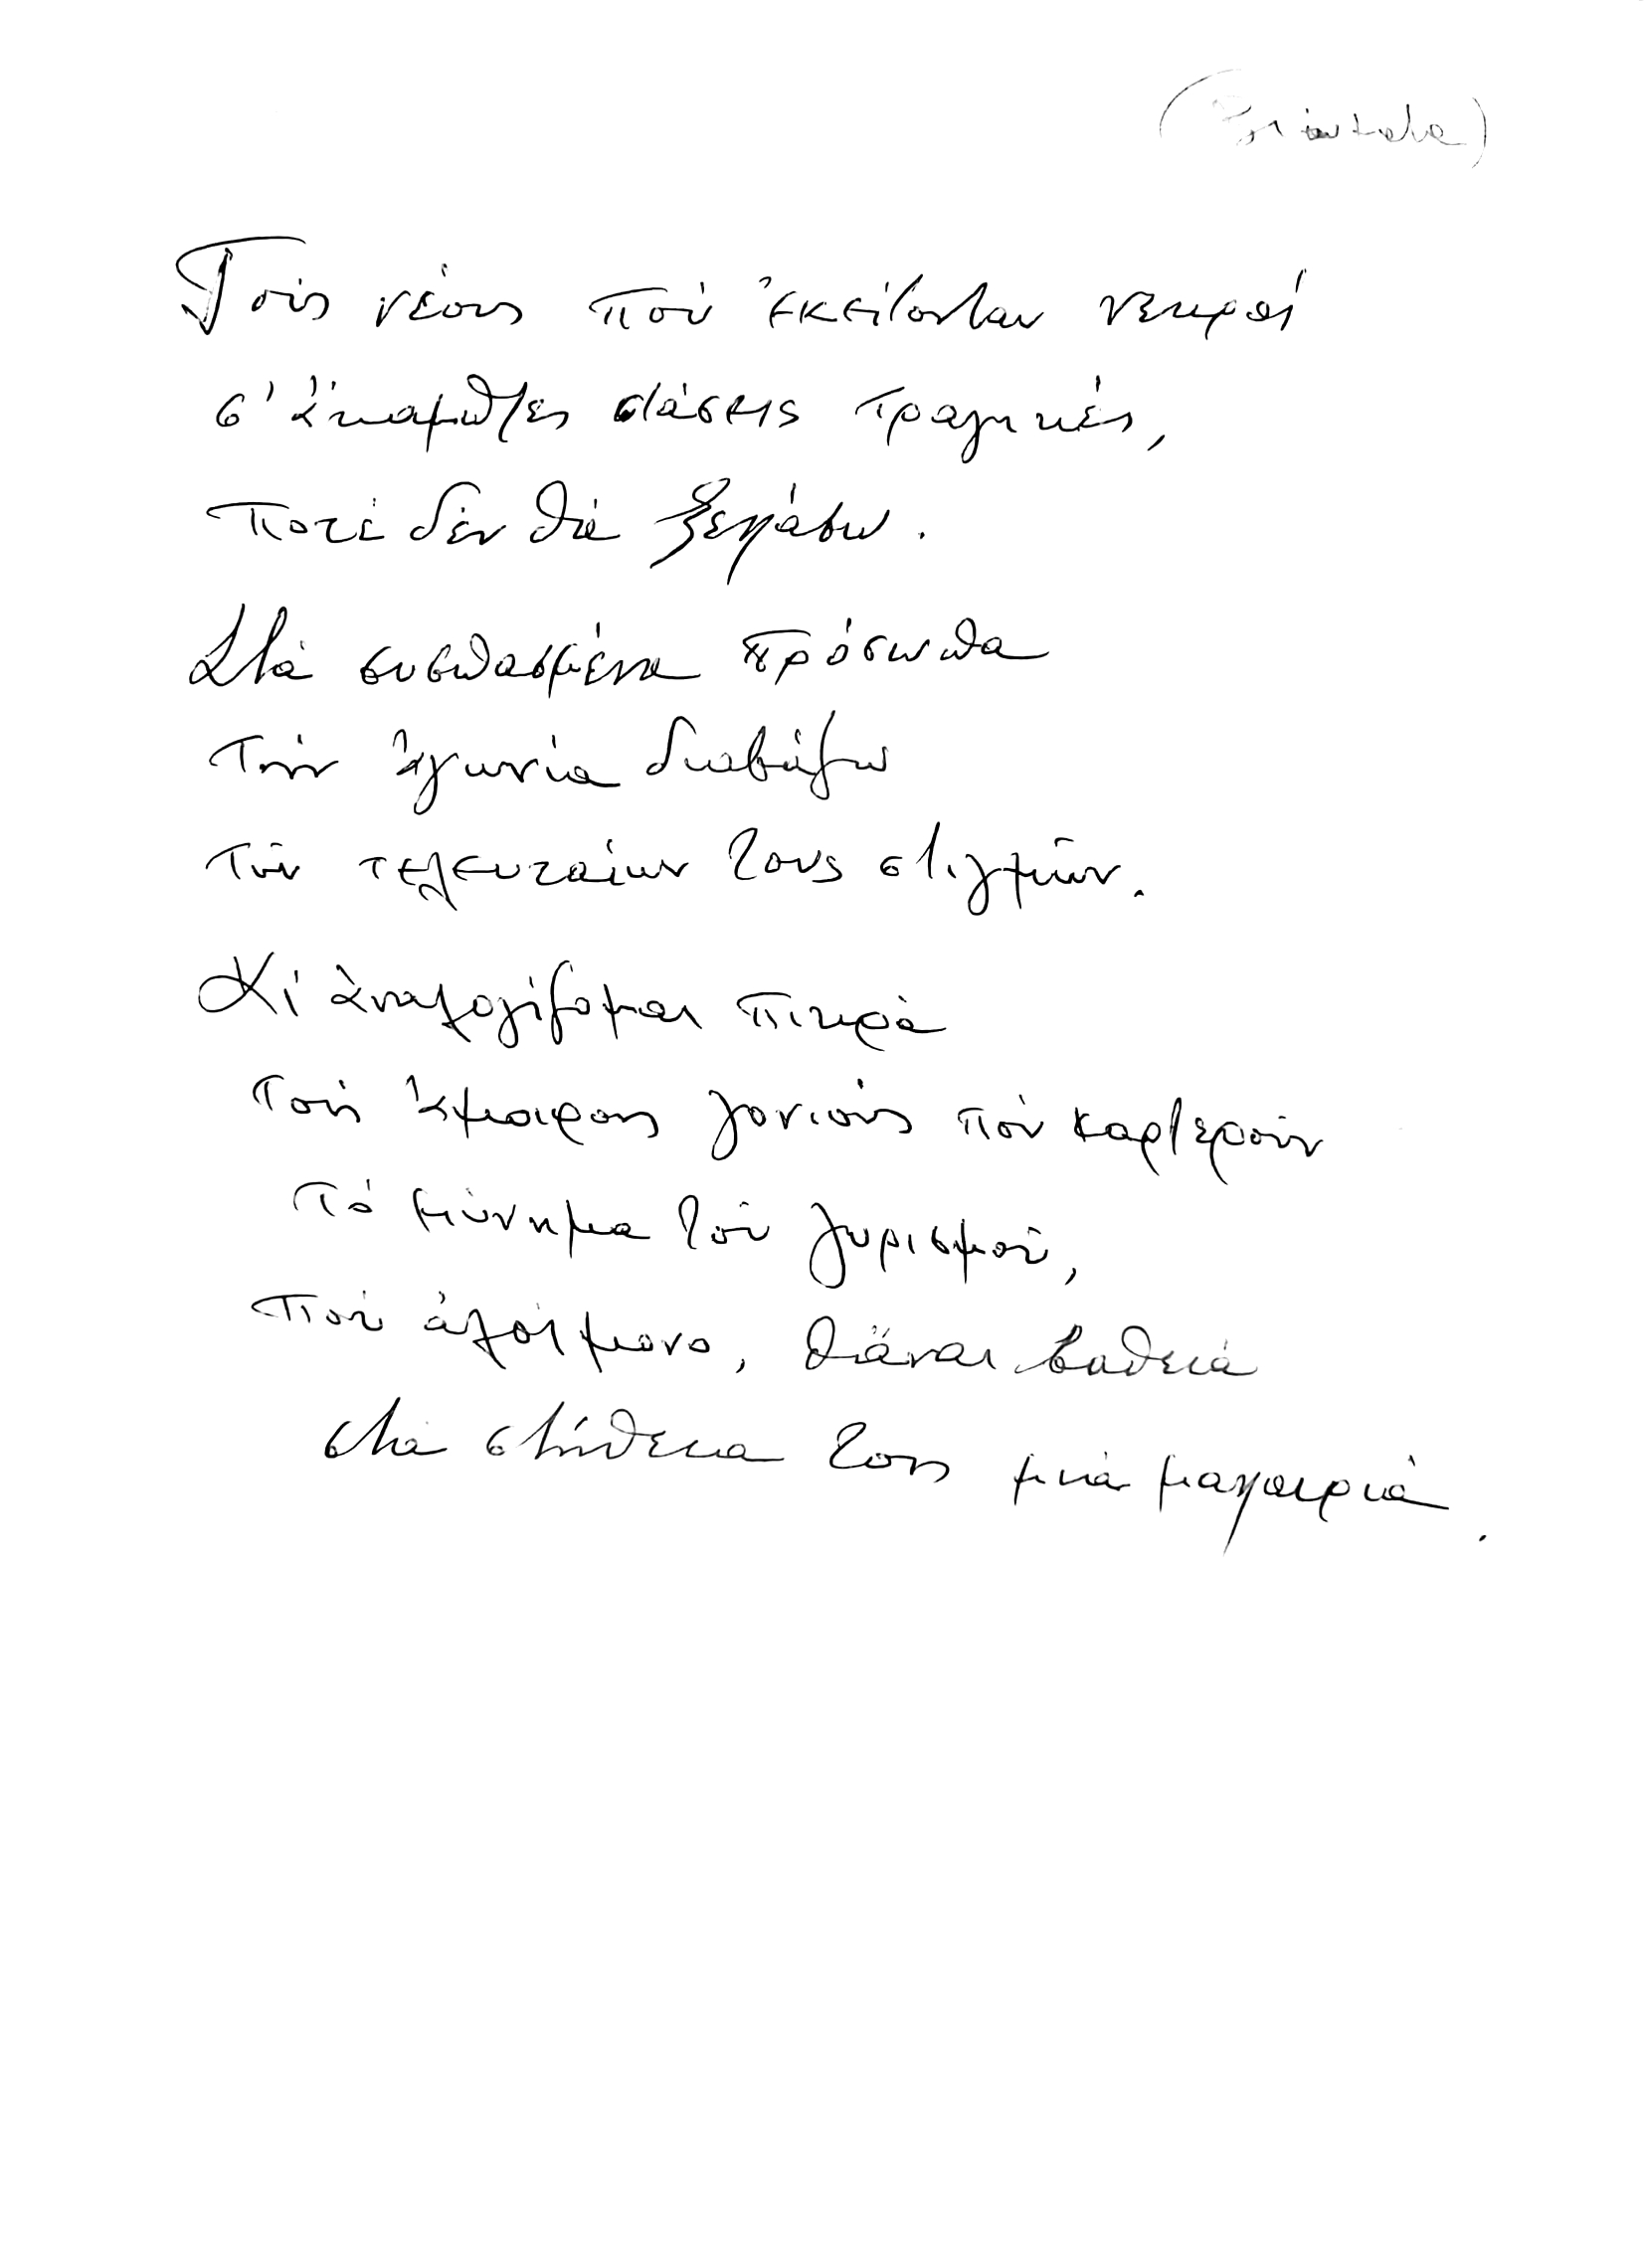 Τούς νέους πού ἐκείτονταν νεκροί
σ' ἄκαμπτες στάσεις τραγικές,
ποτέ δέν θά ξεχάσω.
Στά συσπασμένα πρόσωπα
τήν ἀγωνία διαβάζω
τῶν τελευταίων τους στιγμῶν.
Κι ἀναλογίζομαι πικρά
τούς ἄμοιρους γονιούς πού καρτεροῦν
τό μύνημα τοῦ γυρισμοῦ,
πού ἀλοίμονο, θἆναι βαθειά
στά στήθεια τους μιά μαχαιριά.